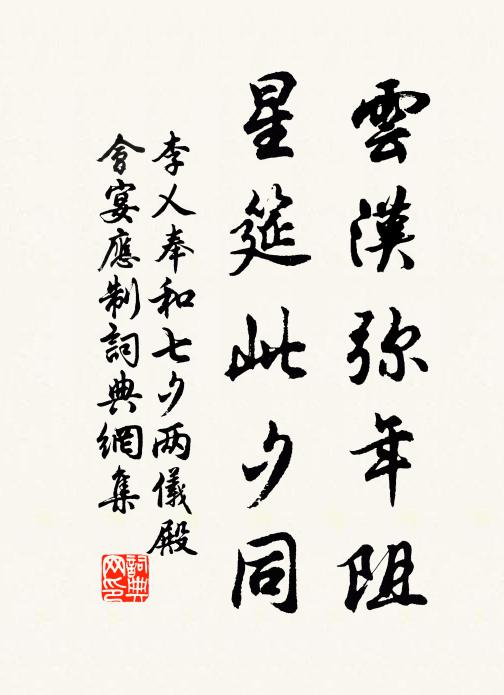 雲漢弥年阻
星筵此夕同
李乂奉和七夕两儀殿
會宴應制詞典網集
詞典网印